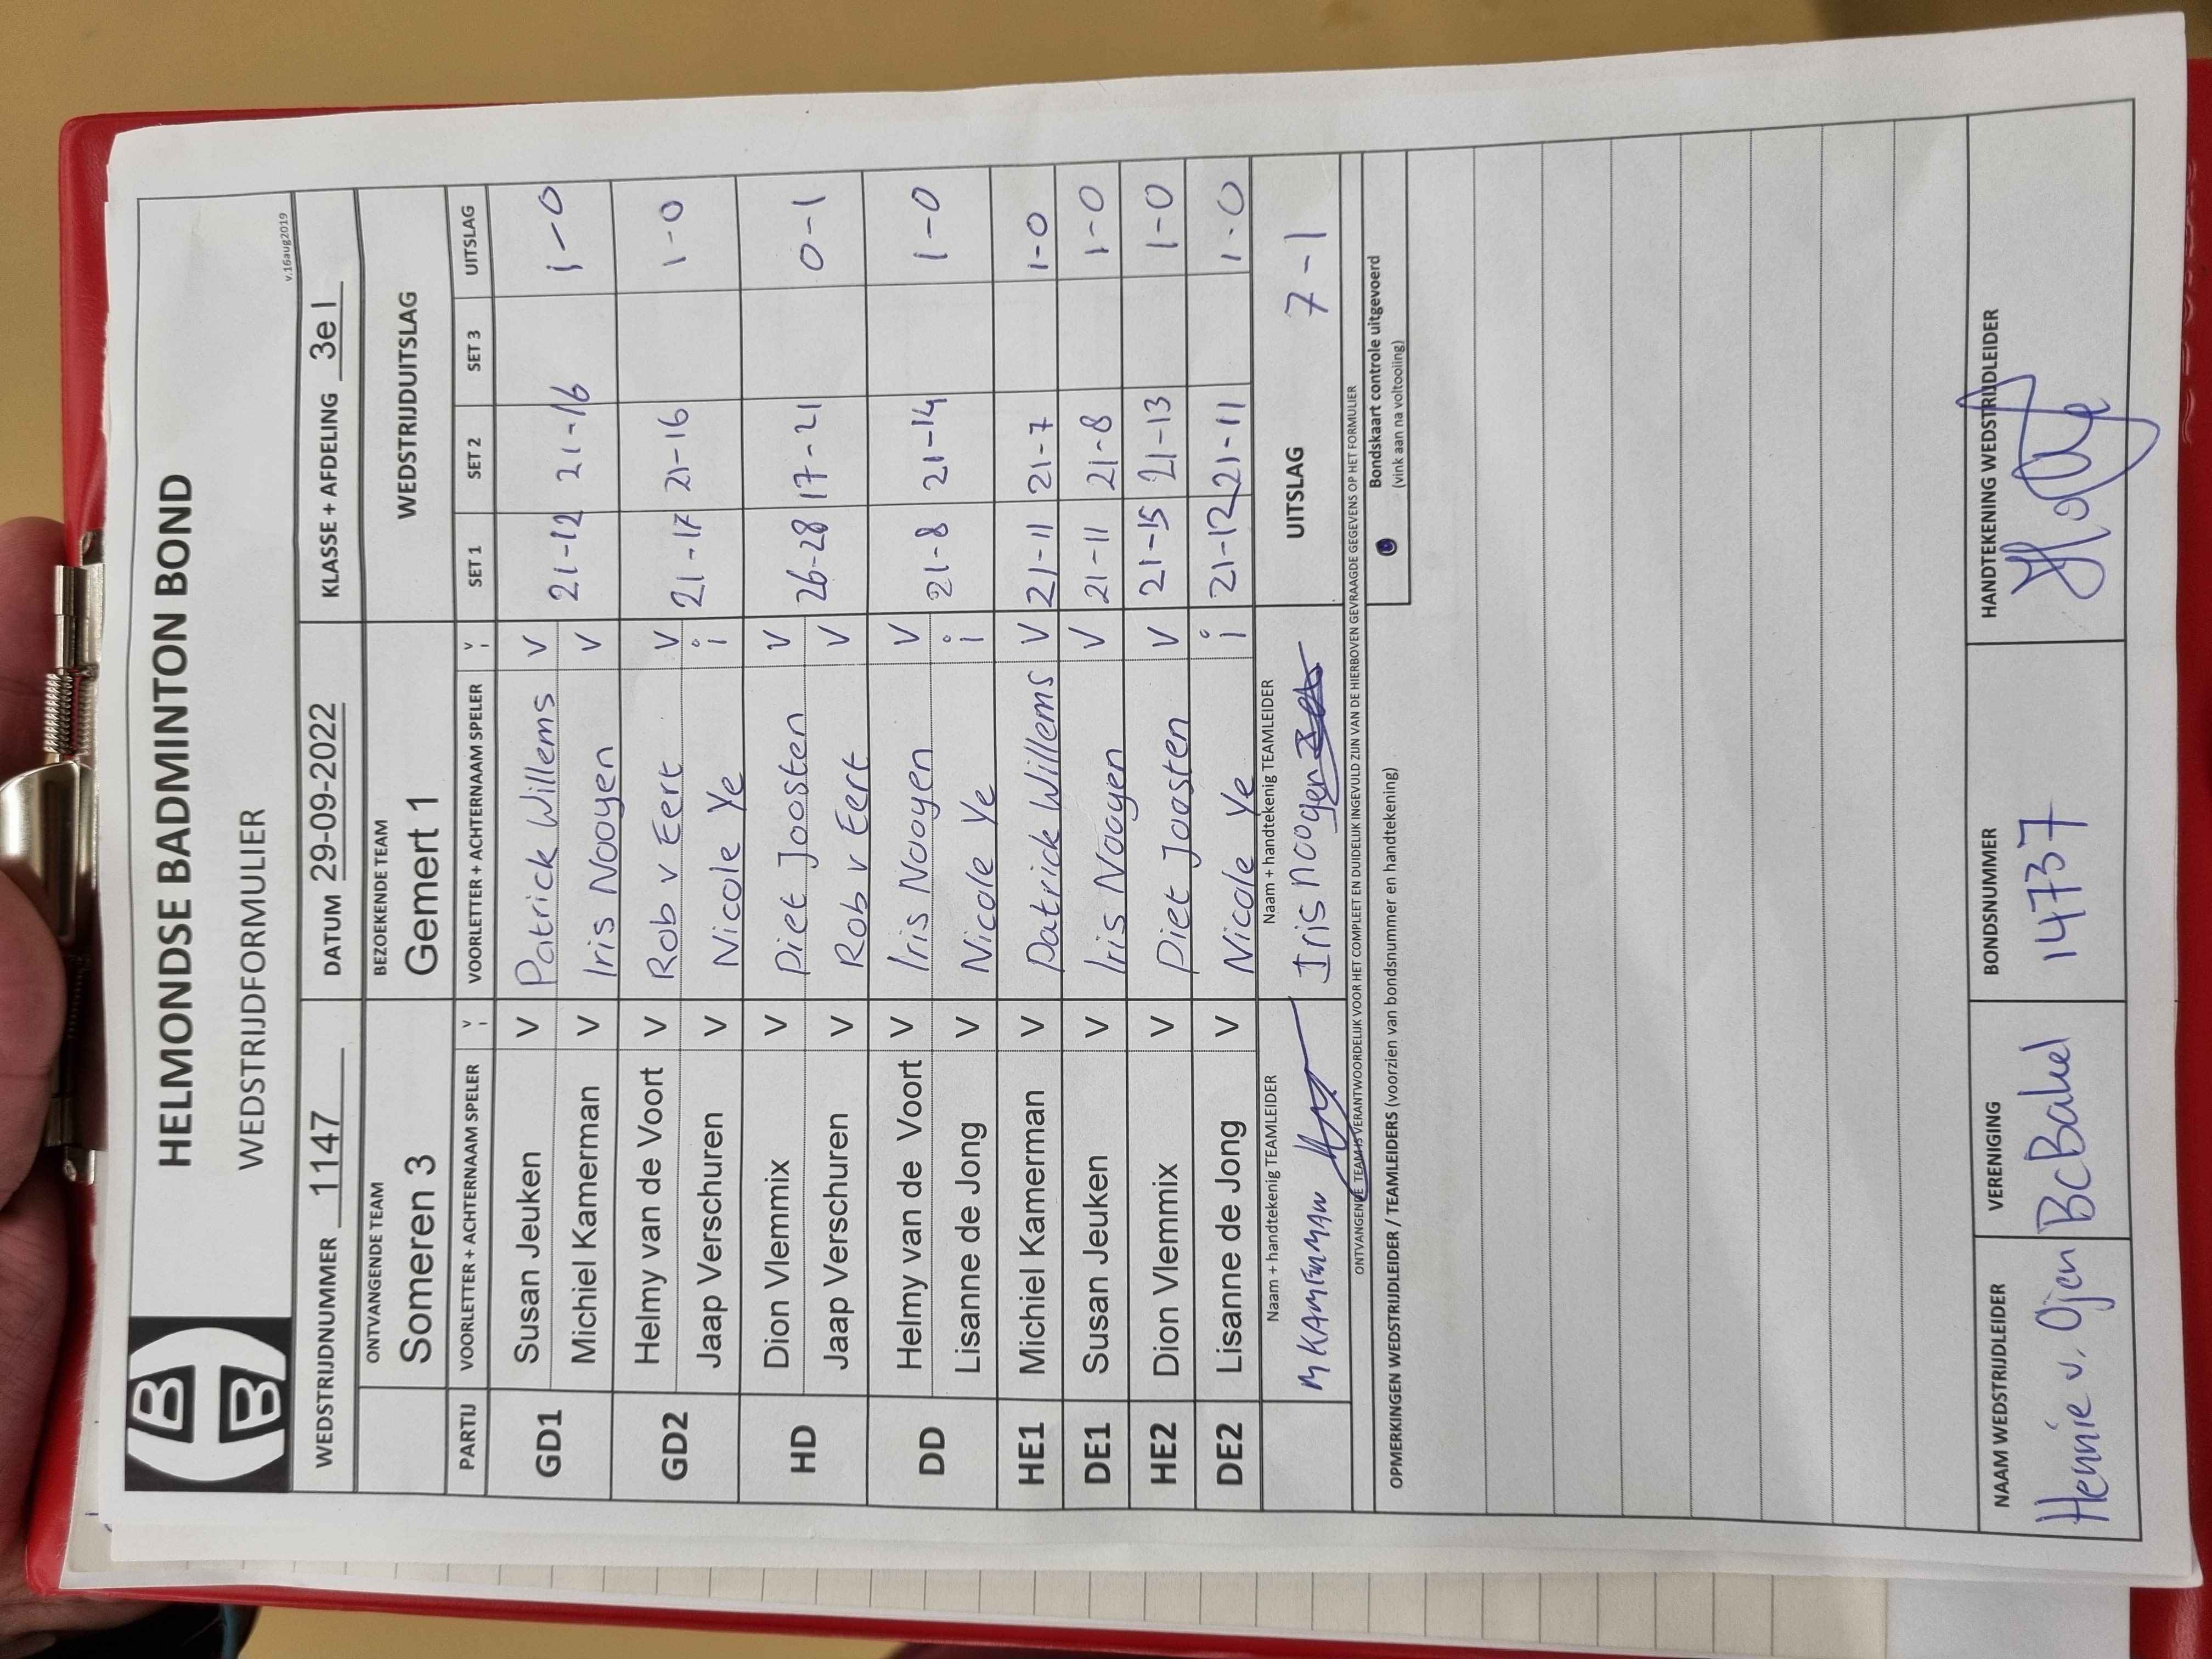 HELMONDSE BADMINTON BOND
WEDSTRIJDFORMULIER
v.16aug2019
WEDSTRIJDNUMMER 1147 DATUM 29-09-2022 KLASSE + AFDELING 3e I
ONTVANGENDE TEAM BEZOEKENDE TEAM WEDSTRIJDUITSLAG
Someren 3 Gemert 1
PARTIJ VOORLETTER + ACHTERNAAM SPELER V i VOORLETTER + ACHTERNAAM SPELER V i SET 1 SET 2 SET 3 UITSLAG
GD1 Susan Jeuken V Patrick Willems V 21-12 21-16 1-0
Michiel Kamerman V Iris Nooyen V
GD2 Helmy van de Voort V Rob v Eert V 21-17 21-16 1-0
Jaap Verschuren V Nicole Ye i
HD Dion Vlemmix V Piet Joosten V 26-28 17-21 0-1
Jaap Verschuren V Rob v Eert V
DD Helmy van de Voort V Iris Nooyen V 21-8 21-14 1-0
Lisanne de Jong V Nicole Ye i
HE1 Michiel Kamerman V Patrick Willems V 21-11 21-7 1-0
DE1 Susan Jeuken V Iris Nooyen V 21-11 21-8 1-0
HE2 Dion Vlemmix V Piet Joosten V 21-15 21-13 1-0
DE2 Lisanne de Jong V Nicole Ye i 21-12 21-11 1-0
Naam + handtekenig TEAMLEIDER Naam + handtekenig TEAMLEIDER UITSLAG 7-1
M KAMERMAN Iris Nooyen
ONTVANGENDE TEAM IS VERANTWOORDELIJK VOOR HET COMPLEET EN DUIDELIJK INGEVULD ZIJN VAN DE HIERBOVEN GEVRAAGDE GEGEVENS OP HET FORMULIER
OPMERKINGEN WEDSTRIJDLEIDER / TEAMLEIDERS (voorzien van bondsnummer en handtekening) Bondskaart controle uitgevoerd
(vink aan na voltooiing)
NAAM WEDSTRIJDLEIDER VERENIGING BONDSNUMMER HANDTEKENING WEDSTRIJDLEIDER
Hennie v. Ojen BC Bakel 14737
HBB